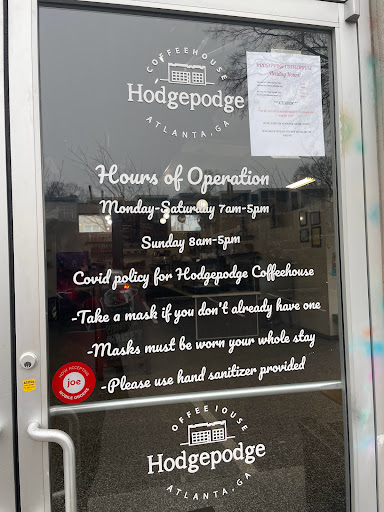 COFFEEHOUSE
Hodgepodge
ATLANTA, GA
Hours of Operation
Monday-Saturday 7am-5pm
Sunday 8am-5pm
Covid policy for Hodgepodge Coffeehouse
-Take a mask if you don't already have one
-Masks must be worn your whole stay
-Please use hand sanitizer provided
NOW ACCEPTING
joe
MOBILE ORDERS
OFFEE OUSE
Hodgepodge
ATLANTA, GA